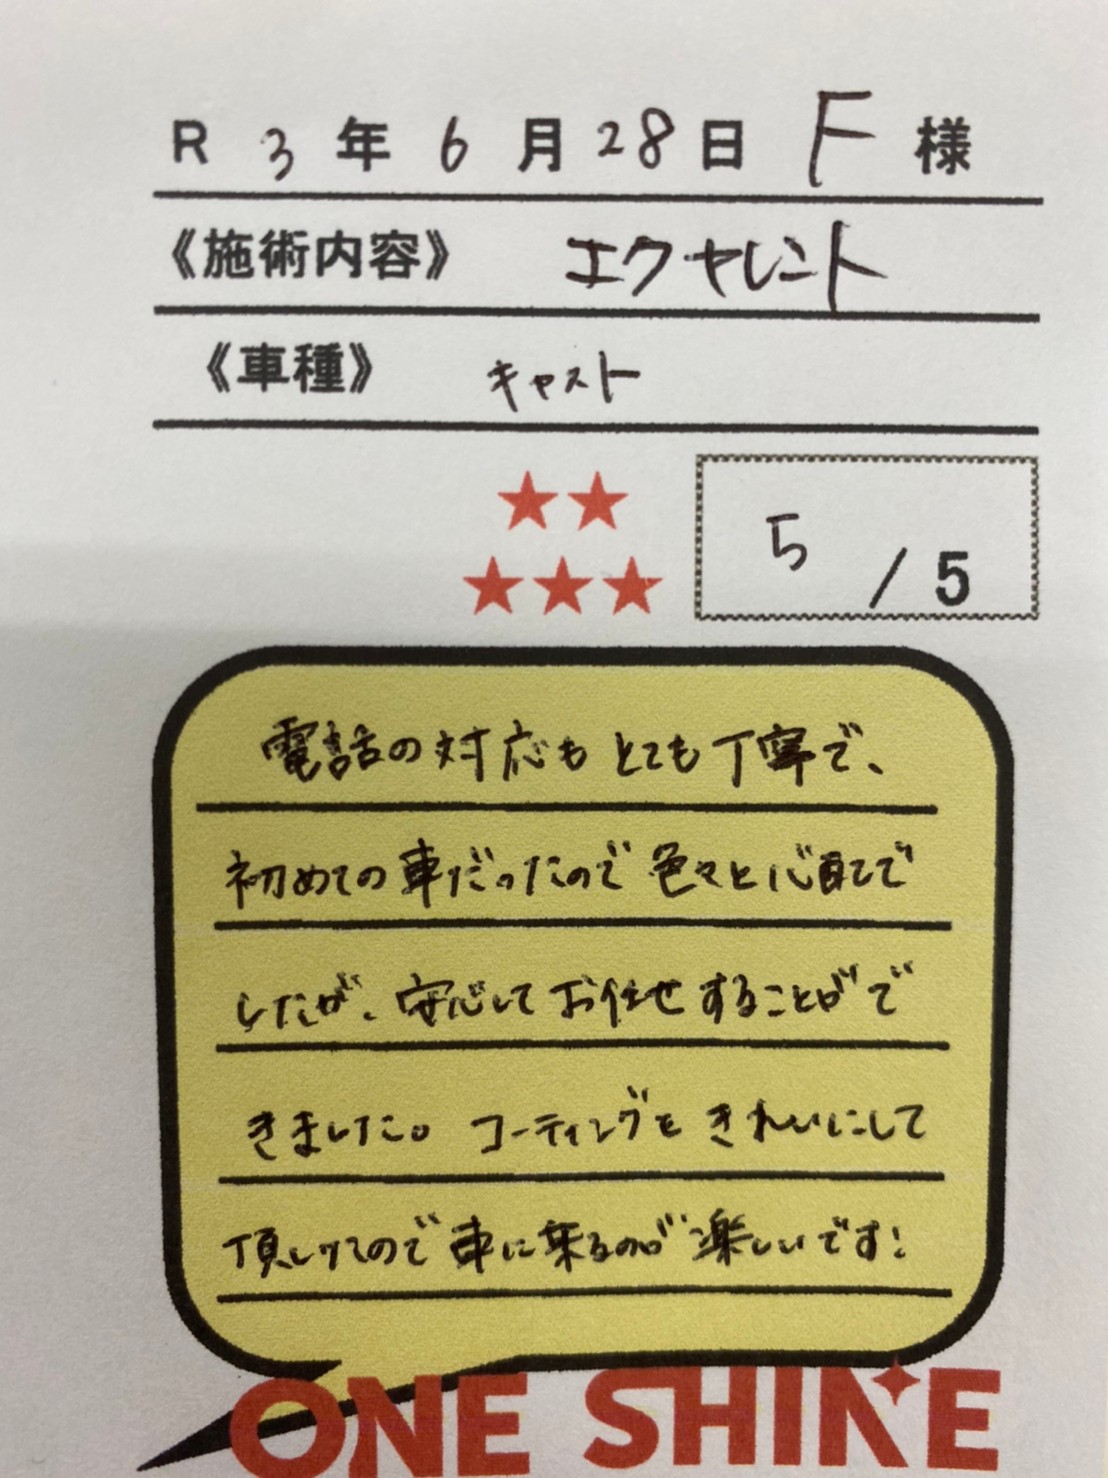 R 3 年 6 月 28 日 F 様
《施術内容》 エクセレント
《車種》 キャスト
★★
★★★
5 / 5
電話の対応もとても丁寧で、
初めての車だったので色々と心配で
したが、安心してお任せすることがで
きました。コーティングもきれいにして
頂いたので車に乗るのが楽しいです!
ONE SHINE